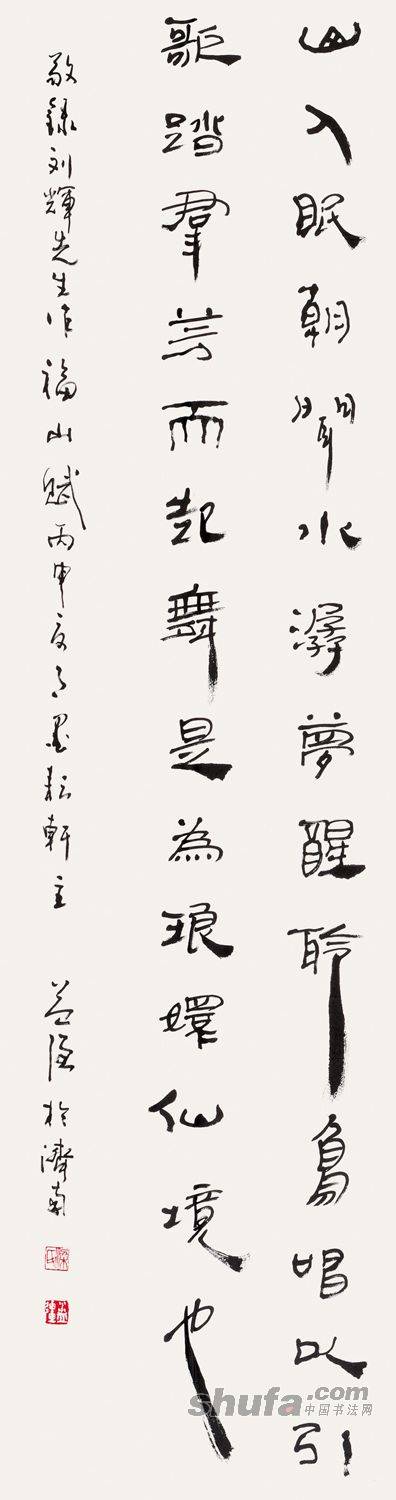 山入眠朝聞水潺夢醒聆鳥唱以引
歌踏羣芳而起舞是為琅嬛仙境也
敬錄刘輝先生作福山賦丙申夏月墨耘軒主 益強於濟南
shufa.com
中国书法网